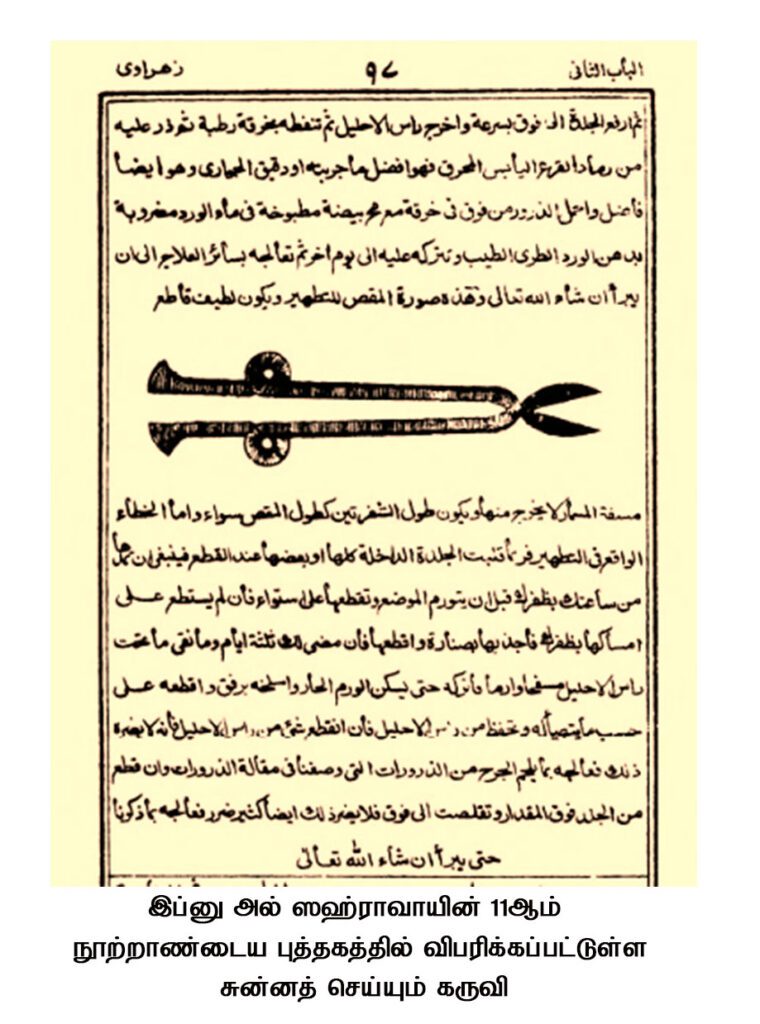 الباب الثانى ٩٧ زهراوى
ثم ارفع الجلدة الى فوق بسرعة واخرج راس الاحليل ثم تنفطه بخرقة رطبة ثم ذر عليه
من رماد القرع اليابس المحرق فهو افضل ما جربته او دقيق الحوارى وهو ايضا
فاضل واحمل الذرور من فوق فى خرقة مع مح بيضة مطبوخة فى ماء الورد مضروبة
بدهن الورد الطرى الطيب وتتركه عليه الى يوم اخر ثم تعالجه بسائر العلاج الى ان
يبرأ ان شاء الله تعالى وهذه صورة المقص للتطهير ويكون لطيف قاطع
المسمار لا يخرج منها ويكون طول الشفرتين كطول المقص سواء واما الخطاء
الواقع فى التطهير فربما الجلدة الداخلة كلها او بعضها عند القطع فينبغى ان
من ساعتك بظفرك قبل ان يتورم الموضع وتقطعها على استواء فان لم يستطع على
امساكها بظفرك فاجذبها بصنارة واقطعها فان مضى لذلك ثلثة ايام وما بقى ما تحت
راس الاحليل منتفخا وارما فاتركه حتى يسكن الورم الحار واسلخه برفق واقطعه على
حسب ما يتهيأ له وتحفظ من راس الاحليل فان انقطع شئ من راس الاحليل فانه لا يضره
ذلك فعالجه بما يلحم الجرح من الذرورات التى وصفنا فى مقالة الذرورات وان قطع
من الجلد فوق المقدار وتقلصت الى فوق فلا يضر ذلك ايضا كثير ضرر فعالجه بما ذكرنا
حتى يبرأ ان شاء الله تعالى
இப்னு அல் ஸஹ்ராவாயின் 11ஆம்
நூற்றாண்டைய புத்தகத்தில் விபரிக்கப்பட்டுள்ள
சுன்னத் செய்யும் கருவி